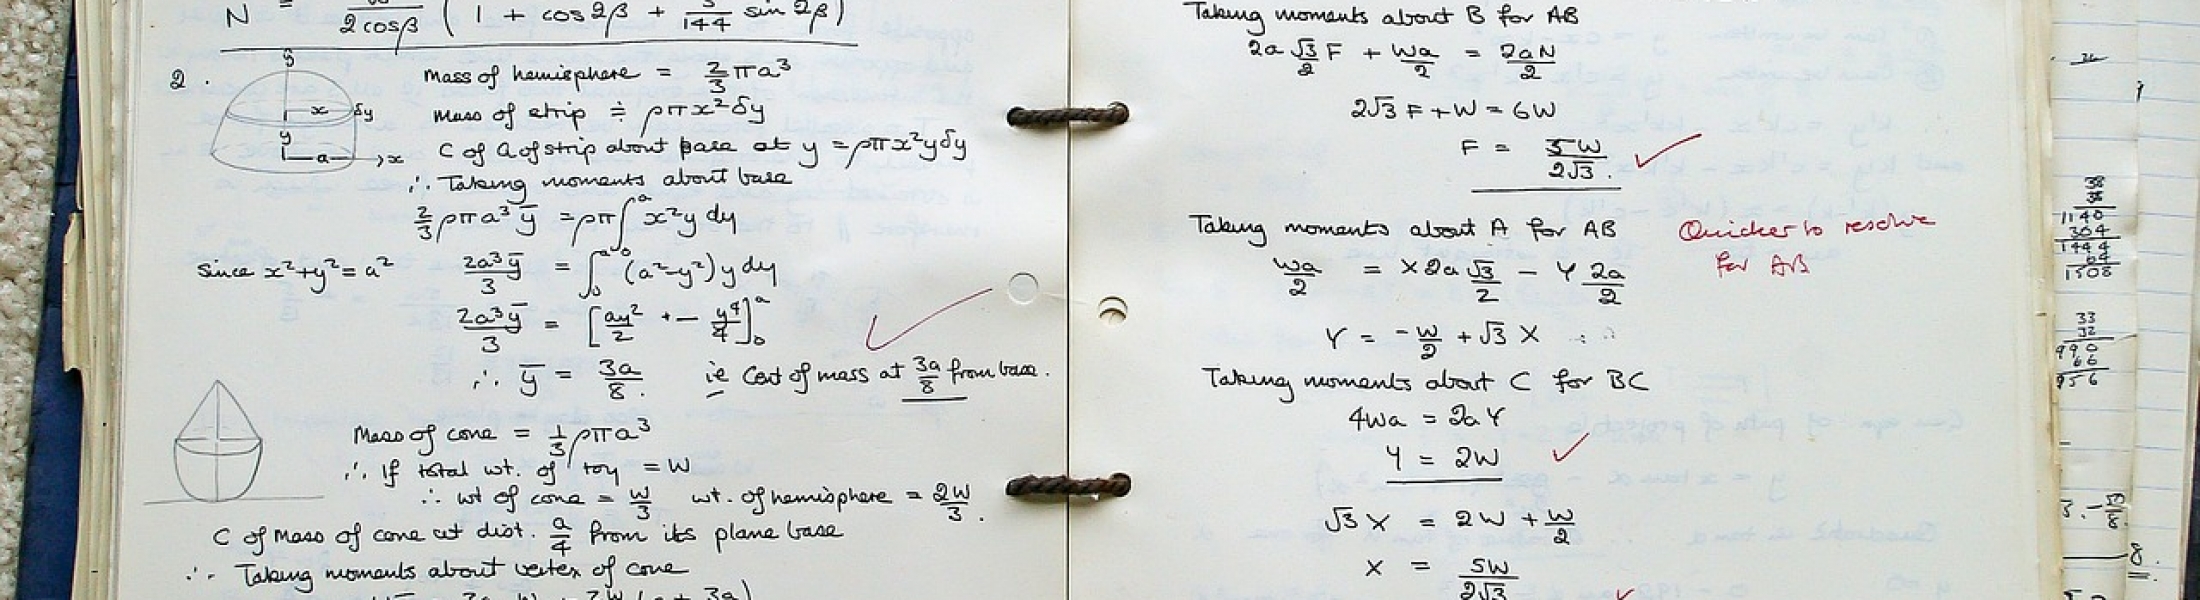 N = 2cosβ ( 1 + cos2β + 144 sin 2β )
2.
y
x δy
y
a → x
Mass of hemisphere = 2/3 πa³
Mass of strip ≑ ρπx²δy
C of G of strip about base at y = ρπx²yδy
∴ Taking moments about base
2/3 ρπa³ȳ = ρπ∫₀ᵃ x²y dy
since x²+y²=a² 2a³ȳ/3 = ∫₀ᵃ (a²-y²)y dy
2a³ȳ/3 = [ay²/2 - y⁴/4]₀ᵃ
∴ ȳ = 3a/8. ie Cent of mass at 3a/8 from base.
Mass of cone = 1/3 ρπa³
∴ If total wt. of toy = W
∴ wt of cone = W/3 wt. of hemisphere = 2W/3.
C of mass of cone at dist. a/4 from its plane base
∴ Taking moments about vertex of cone
Taking moments about B for AB
2a √3/2 F + Wa/2 = 2aN/2
2√3 F + W = 6W
F = 5W/2√3.
Taking moments about A for AB
Quicker to resolve
for AB
Wa/2 = X2a √3/2 - Y 2a/2
Y = -W/2 + √3 X
Taking moments about C for BC
4Wa = 2aY
Y = 2W
√3 X = 2W + W/2
X = 5W/2√3
38
38
1140
304
1444
64
1508
33
32
990
66
956
8.